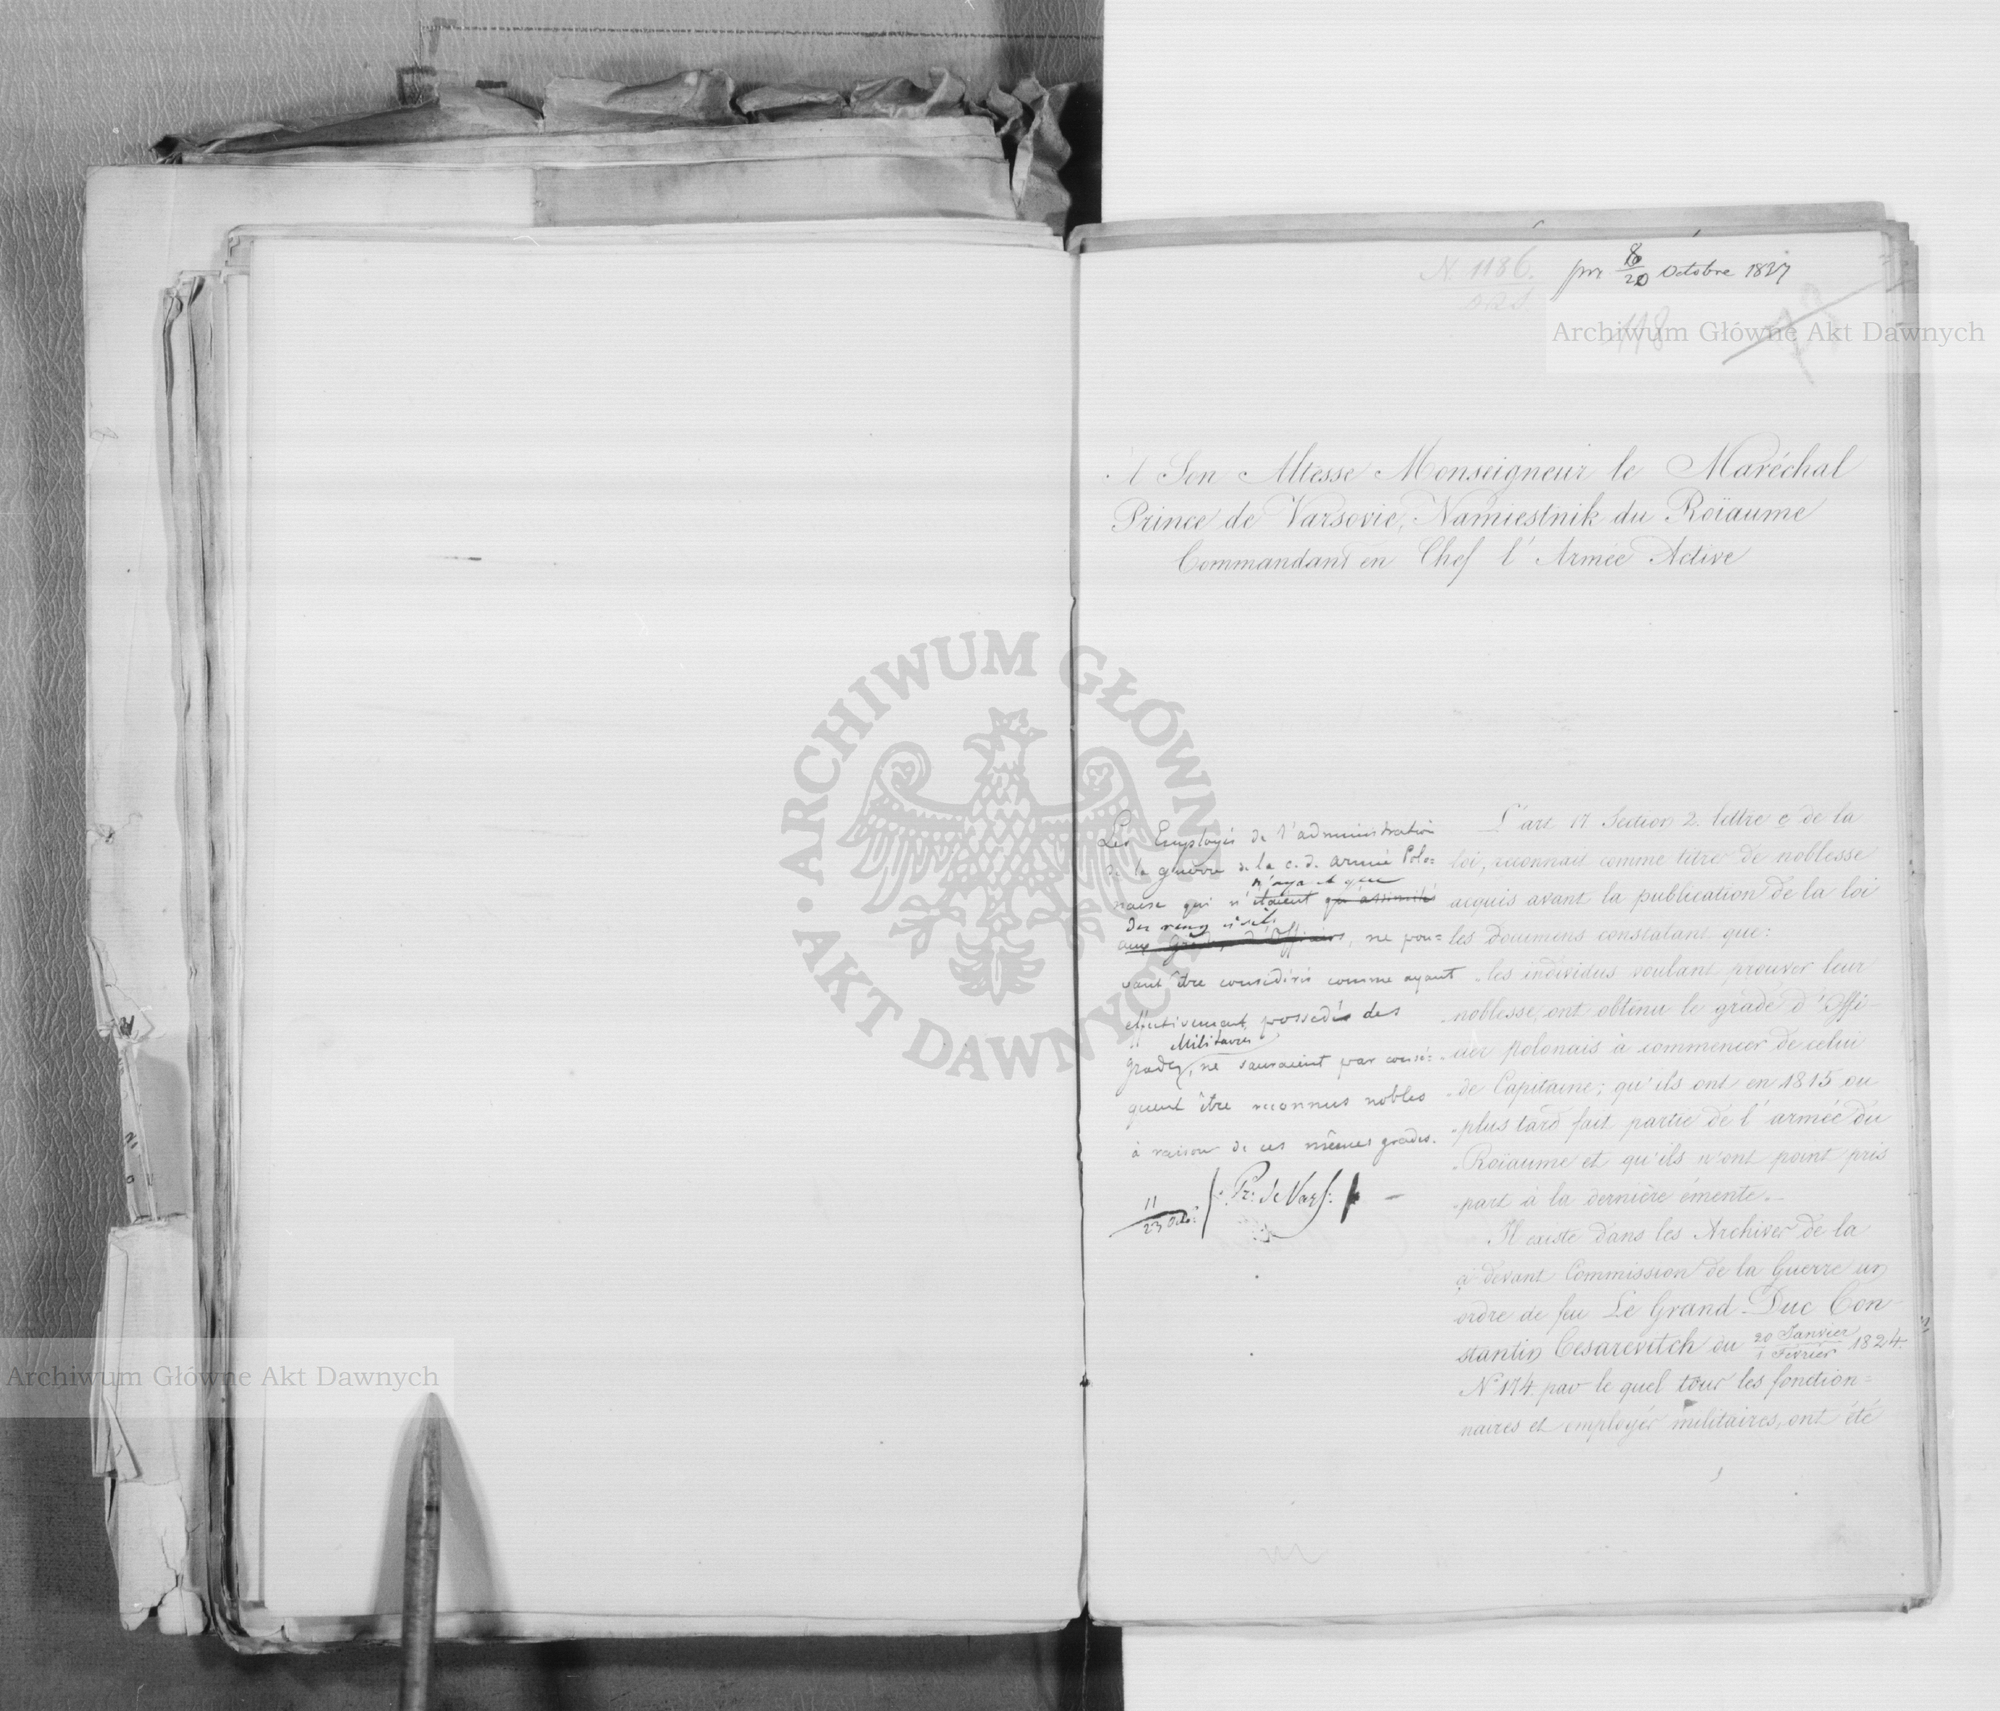 N. 1186.
pr 8/20 Octobre 1837
118
A Son Altesse Monseigneur le Maréchal
Prince de Varsovie, Namiestnik du Roïaume
Commandant en Chef l'Armée Active
Les Employés de l'administration
de la guerre de la c. d. armée Polo=
n'aya t que
naise qui n'étaient qu'assimilés
des rang civils
aux grades d'Officiers, ne pou=
vant être considérés comme ayant
effectivement possedé des
Militaires
grades, ne sauraient par consé=
quent être reconnus nobles
à raison de ces mêmes grades.
11/23 Octb. /: Pr: de Vars: /
L'art 17 Section 2. lettre c de la
loi, reconnait comme titre de noblesse
acquis avant la publication de la loi
les Documens constatant que:
"les individus voulant prouver leur
"noblesse, ont obtenu le grade d'Offi-
"cier Polonais à commencer de celui
"de Capitaine; qu'ils ont en 1815 ou
"plus tard fait partie de l'armée du
"Roïaume et qu'ils n'ont point pris
"part à la dernière émente.
Il existe dans les Archives de la
ci devant Commission de la Guerre un
ordre de feu Le Grand-Duc Con-
stantin Cesarevitch du 20 Janvier/1 Fevrier 1824.
N 174 par le quel tous les fonction=
naires et employés militaires, ont été
ARCHIWUM GŁÓWNE AKT DAWNYCH
Archiwum Główne Akt Dawnych
Archiwum Główne Akt Dawnych